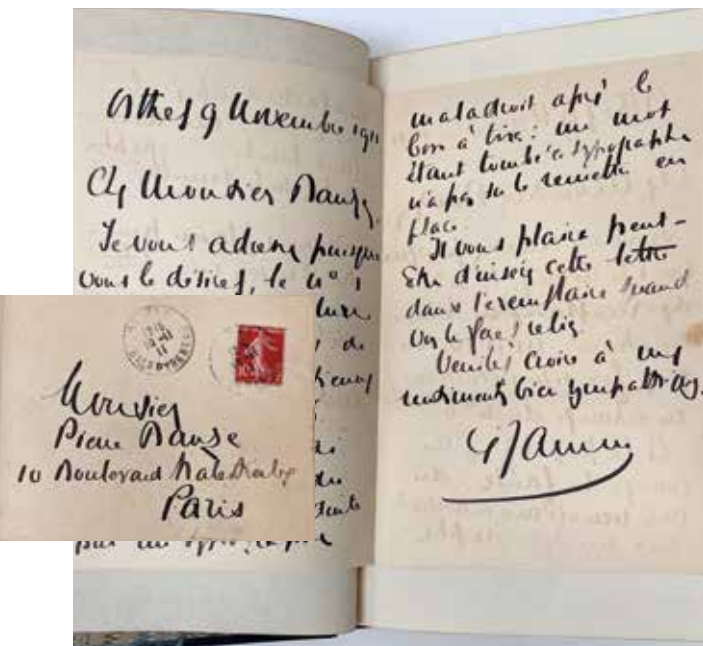 Orthez 9 Novembre 1911
Cher Monsieur Dauze,
Je vous adresse puisque
vous le désirez, le n° 1
de
par un typographe
maladroit après le
bon à tirer : un mot
étant tombé ce typographe
n'a pas su le remettre en
place.
Il vous plaira peut-
être d'insérer cette lettre
dans l'exemplaire quand
vous le ferez relier
Veuillez croire à mes
sentiments bien sympathiques.
F Jammes
Monsieur
Pierre Dauze
10 Boulevard Malesherbes
Paris
10